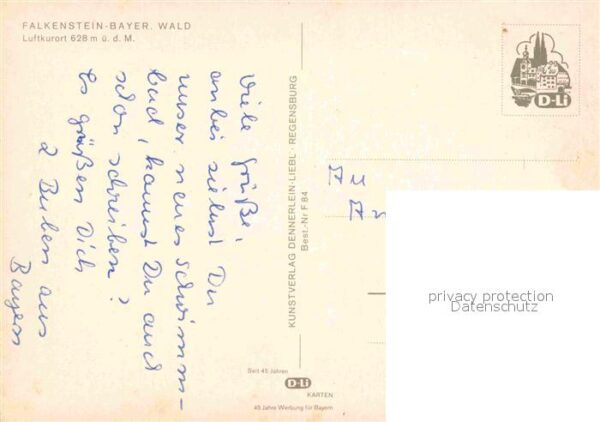 FALKENSTEIN-BAYER. WALD
Luftkurort 628 m ü. d. M.
Viele Grüße,
anbei siehst Du
unser neues Schwimm-
bad, kannst Du auch
schon schreiben?
Es grüßen Dich
2 Buben aus
Bayern
KUNSTVERLAG DENNERLEIN-LIEBL · REGENSBURG
Best.-Nr F 84
D-Li
privacy protection
Datenschutz
Seit 45 Jahren
D-Li
KARTEN
45 Jahre Werbung für Bayern